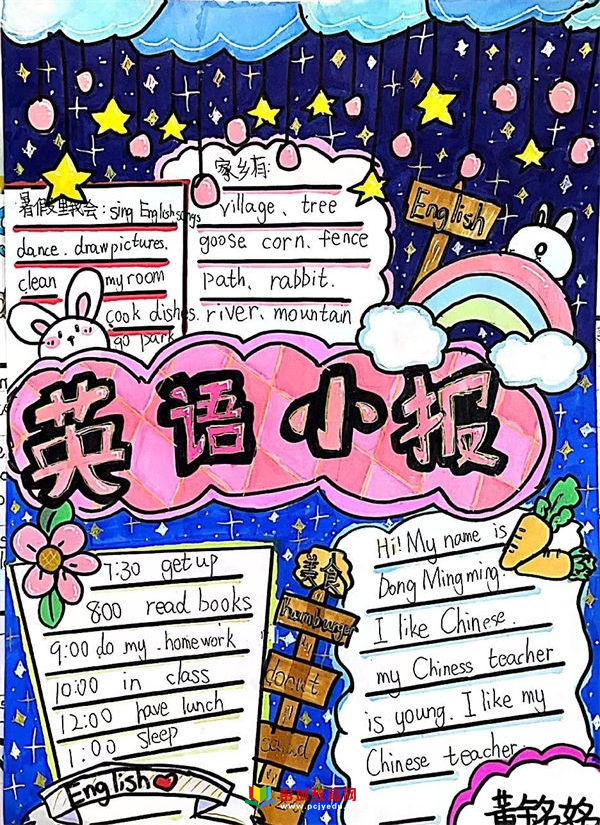 暑假里我会: sing English songs
dance. draw pictures.
clean my room
cook dishes.
go park
家乡有:
village、tree
goose corn、fence
path、rabbit.
river、mountain
English
英语小报
7:30 get up
8:00 read books
9:00 do my homework
10:00 in class
12:00 have lunch
1:00 sleep
English
美食
hamburger
donut
Hi! My name is
Dong Mingming.
I like Chinese.
my Chiness teacher
is young. I like my
Chinese teacher.
www.pcjyedu.com